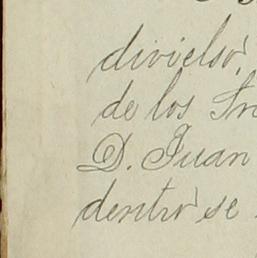 divielso
de los Sr
D. Juan
dentro se